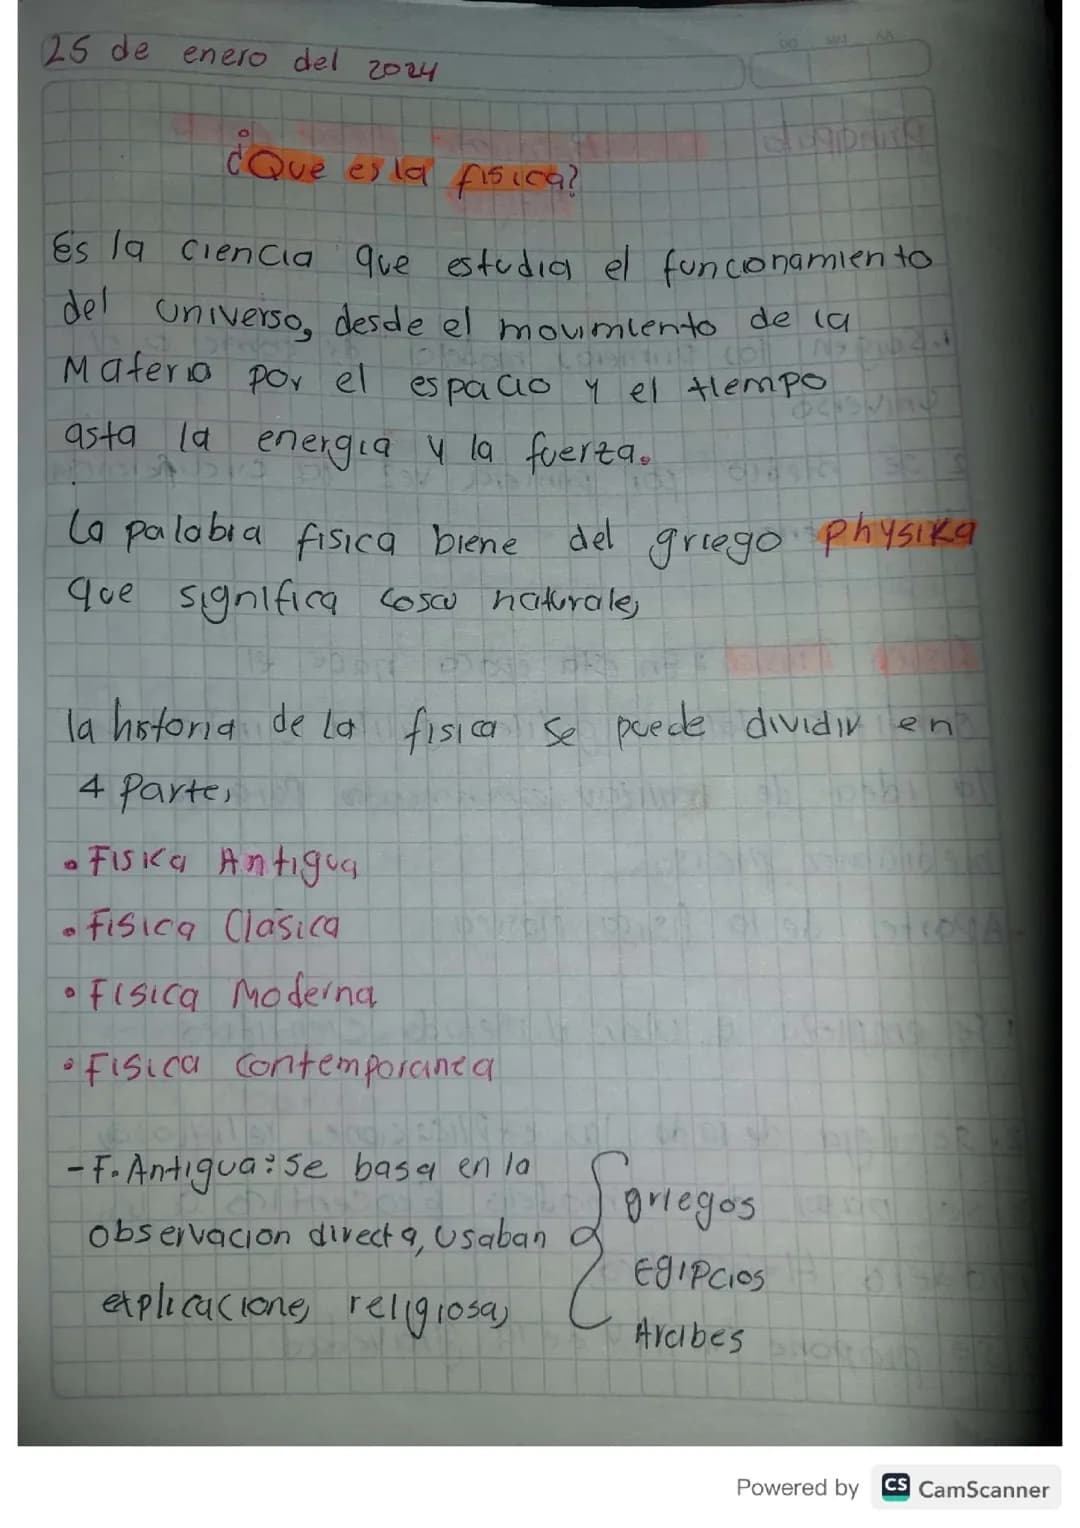 25 de enero del 2024
¿Que es la fisica?
Es la ciencia que estudia el funcionamiento
del universo, desde el movimiento de la
Materia por el espacio y el tiempo
asta la energia y la fuerza.
La palabra fisica biene del griego physika
que significa cosas naturales
la historia de la fisica se puede dividir en
4 Partes
• Fisica Antigua
• Fisica Clasica
• Fisica Moderna
• Fisica Contemporanea
- F. Antigua: se basa en la
observacion directa, usaban
explicaciones religiosas
griegos
Egipcios
Arabes
Powered by CS CamScanner